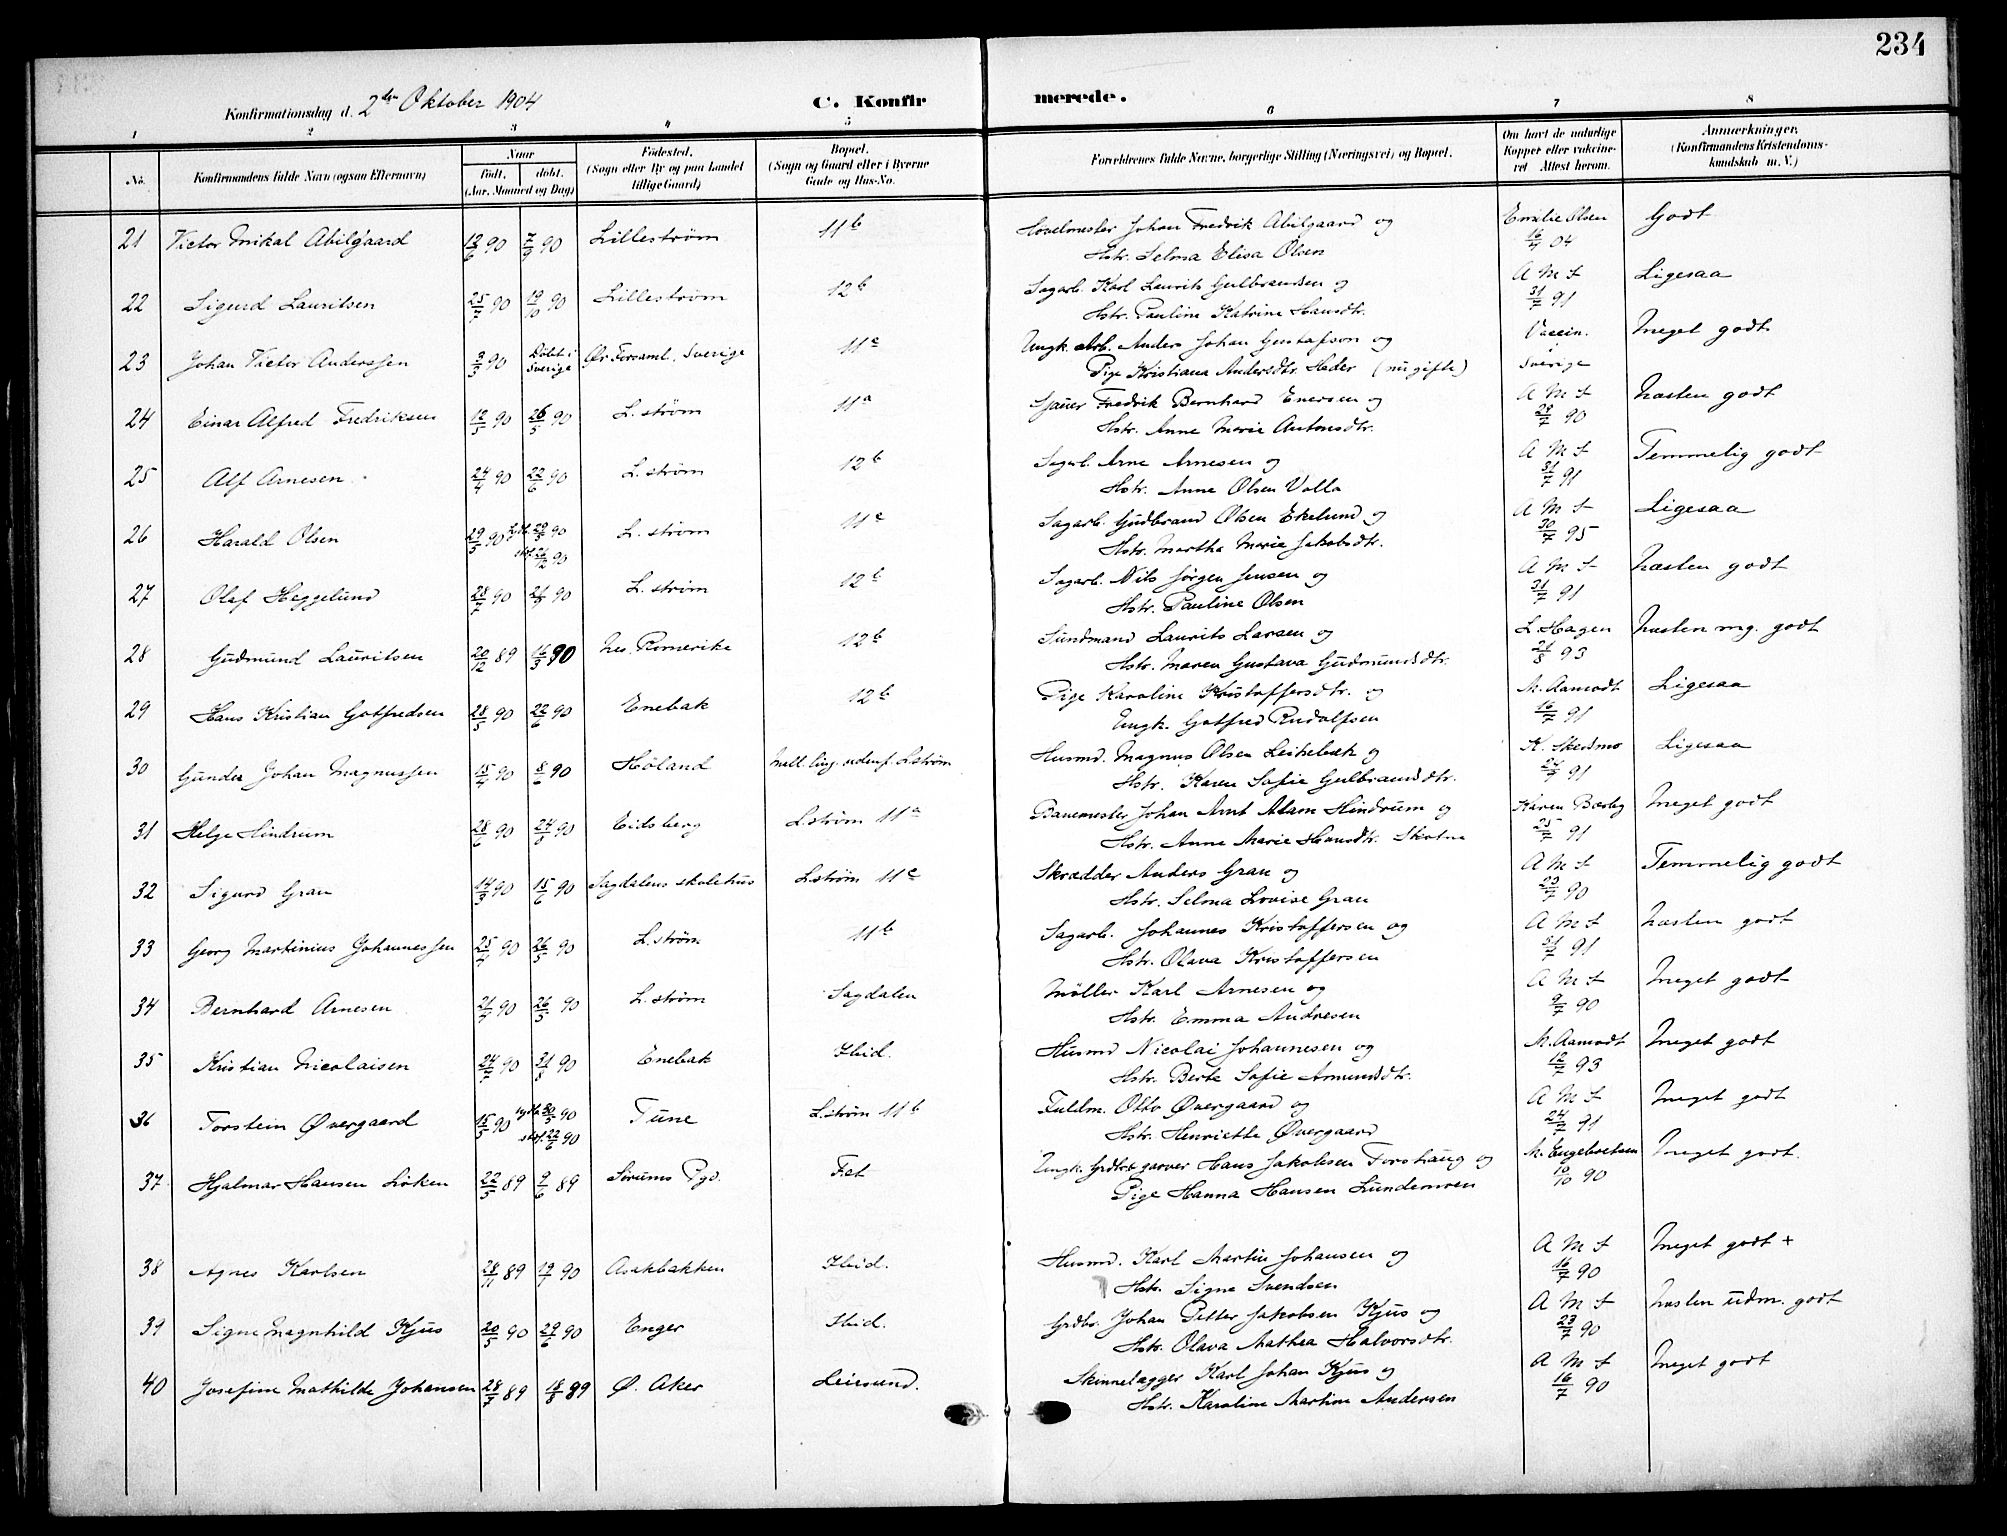 234
Konfirmationsdag d. 2den Oktober 1904 C. Konfir merede.
1 2 3 4 5 6 7 8
No. Konfirmandens fulde Navn (ogsaa Efternavn) Naar født. døbt. (Aar, Maaned og Dag) Fødested. (Sogn eller By og paa Landet tillige Gaard) Bopæl. (Sogn og Gaard eller i Byerne Gade og Hus-No. Forældrenes fulde Navne, borgerlige Stilling (Næringsvei) og Bopæl. Om havt de naturlige Kopper eller vaccineret Attest herom. Anmærkninger. (Konfirmandens Kristendomskundskab m. V.)
21 Victor Mikal Abilgaard 12/6 90 7/9 90 Lillestrøm 11b Johan Fredrik Abilgaard og Emilie Olsen Godt
Hstr. Selma Elisa Olsen 16/4 04
22 Sigurd Lauritsen 25/7 90 19/10 90 Lillestrøm 12b Sagarb. Karl Laurits Gulbrandsen og A M S Ligesaa
Hstr. Pauline Katrine Hansdtr. 31/7 91
23 Johan Victor Anderssen 3/3 90 Døbt i Sverige Ør Forsaml. Sverige 11c Ungk. Arb. Anders Johan Gustafson og Vaccin. Meget godt
Pige Kristiana Andersdtr. Heder (nu gifte) i Sverige
24 Einar Alfred Fredriksen 12/5 90 26/5 90 L. strøm 11a Fredrik Bernhard Enersen og A M S Næsten godt
Hstr. Anne Marie Antonsdtr. 29/7 90
25 Alf Arnesen 24/4 90 22/6 90 L. strøm 12b Sagarb. Arne Arnesen og A M S Temmelig godt
Hstr. Anne Olsen Volla 31/7 91
26 Harald Olsen 29/5 90 29/5 90 26/12 90 L. strøm 11c Sagarb. Gudbrand Olsen Ekelund og A M S Ligesaa
Hstr. Martha Marie Jakobsdtr. 30/7 95
27 Olaf Heggelund 28/7 90 90 L. strøm 12b Sagarb. Nils Jørgen Jensen og A M S Næsten godt
Hstr. Pauline Olsen 31/7 91
28 Gudmund Lauritsen 20/12 89 16/3 90 Nes. Romerike 12b Sundmand Laurits Larsen og L. Hagen Næsten mg. godt
Hstr. Maren Gustava Gudmundsdtr. 21/8 93
29 Hans Kristian Gotfredsen 28/5 90 22/6 90 Enebak 12b Pige Karoline Kristoffersdtr. og M. Aamodt Ligesaa
Ungk. Gotfred Rudolfsen 16/7 91
30 Gunder Johan Magnussen 15/4 90 8/6 90 Høland Husmd. Magnus Olsen og K. Skedsmo Ligesaa
Hstr. Karen Sofie Gulbrandsdtr. 91
31 Helge Hindrum 28/6 90 24/8 90 Eidsberg L.strøm 11a Banemester Johan Arnt Adam Hindrum og Karen Meget godt
Hstr. Anne Marie Hansdtr. 25/7 91
32 Sigurd Gran 14/3 90 15/6 90 Sagdalens skolehus L.strøm 11c Skrædder Anders Gran og A M S Temmelig godt
Hstr. Selma Lovise Gran 23/7 90
33 Georg Martinius Johannessen 25/4 90 26/5 90 L. strøm 11b Sagarb. Johannes Kristoffersen og A M S Næsten godt
Hstr. Olava Kristoffersen 31/7 91
34 Bernhard Arnesen 21/4 90 26/5 90 L. strøm Sagdalen Møller Karl Arnesen og A M S Meget godt
Hstr. Emma Andresen 9/7 90
35 Kristian Nicolaisen 24/7 90 31/8 90 Enebak Ibid. Husmd Nicolai Johannesen og M. Aamodt Meget godt
Hstr. Berte Sofie Amundsdtr. 12/7 93
36 Torstein Øvergaard 15/5 90 30/5 90 22/6 90 Tune L.strøm 11b Fuldm. Otto Øvergaard og A M S Meget godt
Hstr. Henriette Øvergaard 24/7 91
37 Hjalmar Hansen Løken 22/5 89 9/6 89 Sørums Pgd. Fet Ungk. Hans Jakobsen Forshaug og M. Engebretsen Meget godt.
Pige Hanna Hansen Lundemoen 10/10 90
38 Agnes Karlsen 28/11 89 19/1 90 Asakbakken Ibid. Husmd. Karl Martin Johansen og A M S Meget godt +
Hstr. Signe Svendsen 16/7 90
39 Signe Magnhild Kjus 20/5 90 29/6 90 Enger Ibid. Grdbr. Johan Petter Jakobsen Kjus og A M S Næsten udm. godt
Hstr. Olava Mathea Halvorsdtr. 23/7 90
40 Josefine Mathilde Johansen 28/7 89 18/8 89 Ø. Aker Leirsund. Skinnelægger Karl Johan Kjus og A M S Meget godt
Hstr. Karoline Martine Andersen 16/7 90